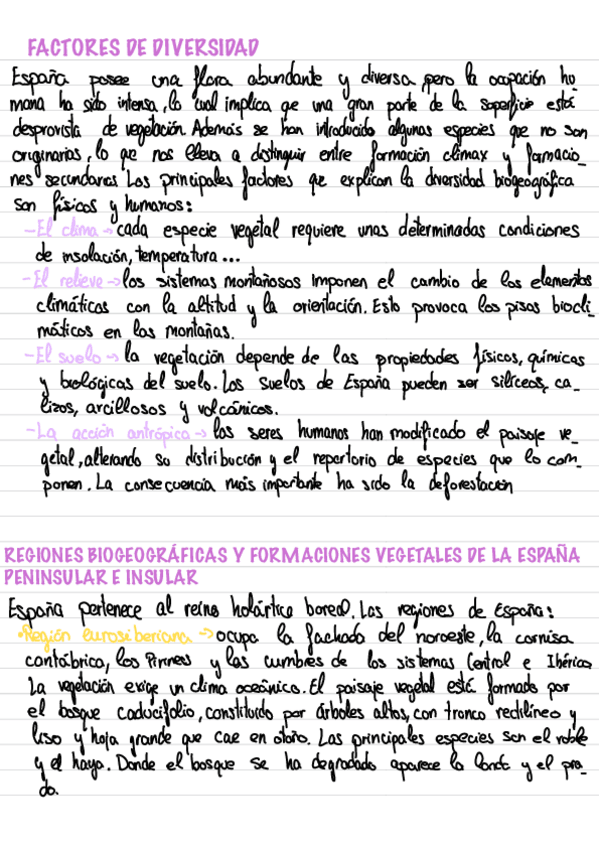 FACTORES DE DIVERSIDAD
España posee una flora abundante y diversa, pero la ocupación hu
mana ha sido intensa, lo cual implica qe una gran parte de la superficie está
desprovista de vegetación. Además se han introducido algunas especies qe no son
originarias, lo qe nos lleva a distinguir entre formación climax y formacio_
nes secundarias Los principales factores qe explican la diversidad biogeográfica
son físicos y humanos:
-El clima → cada especie vegetal requiere unas determinadas condiciones
de insolación, temperatura...
-El relieve → los sistemas montañosos imponen el cambio de los elementos
climáticos con la altitud y la orientación. Esto provoca los pisos biocli_
máticos en las montañas.
-El suelo → la vegetación depende de las propiedades físicas, químicas
y biológicas del suelo. Los suelos de España pueden ser silíceos, ca_
lizos, arcillosos y volcánicos.
-La acción antrópica → los seres humanos han modificado el paisaje ve_
getal, alterando su distribución y el repertorio de especies que lo com_
ponen. La consecuencia más importante ha sido la deforestación
REGIONES BIOGEOGRÁFICAS Y FORMACIONES VEGETALES DE LA ESPAÑA
PENINSULAR E INSULAR
España pertenece al reino holártico boreal. Las regiones de España:
•Región eurosiberiana → ocupa la fachada del noroeste, la cornisa
cantábrica, los Pirineos y las cumbres de los sistemas Central e Ibérico
La vegetación exige un clima oceánico. El paisaje vegetal está formado por
el bosque caducifolio, constituido por árboles altos, con tronco rectilíneo y
liso y hoja grande que cae en otoño. Las principales especies son el roble
y el haya. Donde el bosque se ha degradado aparece la landa y el pra_
do.